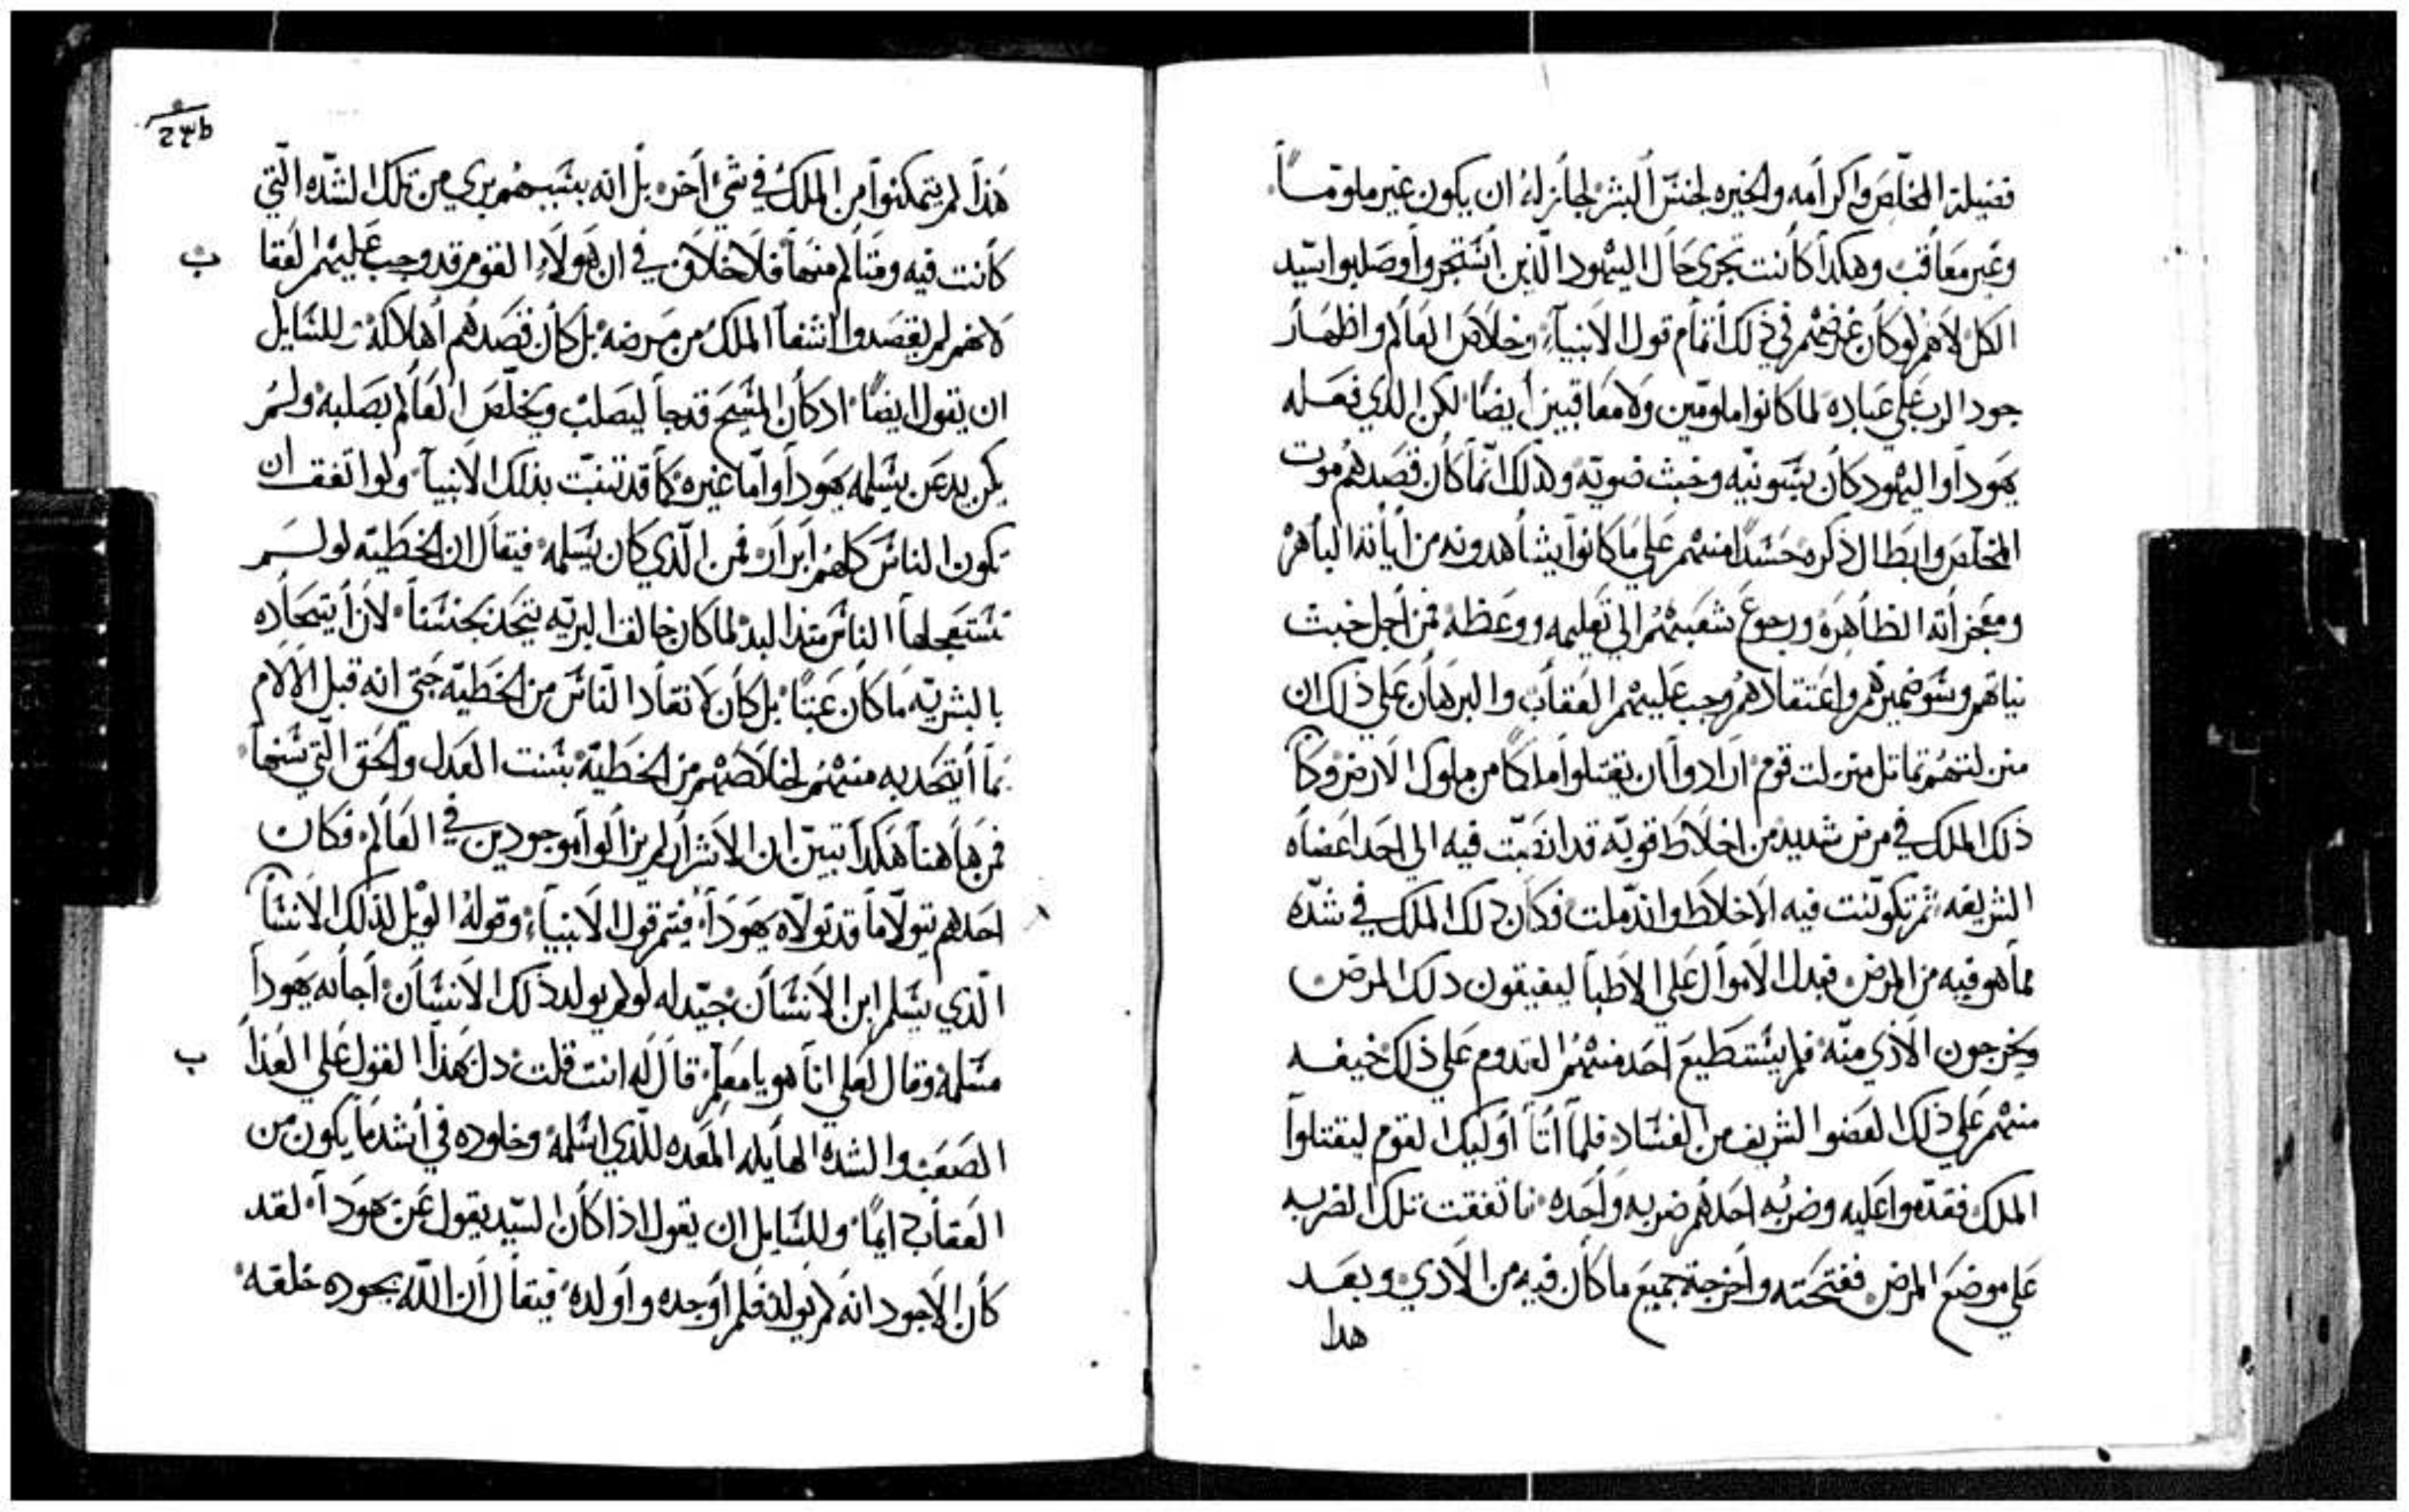 فضيلة المخلّص واكرامه والخيره لجنس البشر لجاز له ان يكون غير ملوّماً
وغير معاقب وهكدا كانت تجرى حال اليهود الذين استجروا وصلبوا سيّد
الكل لانهم لو كان غرضهم في ذلك اتمام قول الانبياء وخلاص العالم واظهار
جود الرب على عباده لما كانوا ملومين ولا معاقبين أيضًا لكن الدي فعله
يهودا واليهود كان بسو نيّه وخبث ضويّه وذلك انّما كان قصدهم موت
المخلّص وابطال ذكره حسدًا منهم على ما كانوا يشاهدونه من اياته الباهره
ومعجزاته الظاهره ورجوع شعبهم الى تعليمه ووعظه فمن اجل خبث
نياتهم وسو ضميرهم واعتقادهم وجب عليهم العقاب والبرهان على ذلك ان
منزلتهم تماتل منزلت قوم ارادوا ان يقتلوا ملكًا من ملوك الارض وكا
ذلك الملك في مرض شديد من اخلاط قويّه قد انصّبت فيه الى احد اعضاه
الشريفه ثم تكوّنت فيه الاخلاط واندّملت فكان دلك الملك في شدّه
مما هو فيه من المرض فبدل الاموال على الاطبا ليفيقون دلك المرض
ويخرجون الاذي منّه فلم يستطيع احد منهم القدوم على ذلك خيفه
منهم على ذلك العضوا الشريف من الفساد فلما اتا أوليك القوم ليقتلوا
الملك فقدّموا عليه وضربه احدهم ضربه واحده فاتفقت تلك الضربه
على موضع المرض ففتحته واخرجة جميع ما كان فيه من الادي وبعد
هدا
23b
هذا لم يتمكنوا من الملك في شي اخر بل انه بسببهم بري من تلك الشدّه الّتي
كانت فيه وقتا لم منها فلا خلاف في ان هولاء القوم قد وجب عليهم العقا
ب
لانهم لم يقصدوا اشفا الملك من مرضه بل كان قصدهم أهلاكه وللسّايل
ان يقول ايضًا اد كان المسيح قد جا ليصلب ويخلّص العالم بصلبه ولم
يكن بد عن يسلمه يهودا واما غيره كما قد تنبّت بذلك الانبيا ولو اتفق ان
تكون الناس كلهم أبرار فمن الّذي كان يسلمه فيقال ان الخطيّه لو لم
تستعجلها الناس منذ البد لما كان خالق البريّه يتحد بجنسنا لان أتحاده
بالبشريّه ما كان عبتًا بل كان لانقاد الناس من الخطيّه حتى انه قبل الالام
بما أيتحد به منهم لخلاصهم من الخطيّة بسنت العدل والحق الّتي سنها
فمن هاهنا هكدا تبيّن ان الاشرار لم يزالوا موجودين في العالم فكان
احدهم يتولّا ما قد تولّاه يهودا فيتم قول الانبياء وقوله الويل لذلك الانسا
الّذي يسلم ابن الانسان جيّد له لو لم يولد ذلك الانسان أجابه يهودا
مسلمه وقال لعلي انا هو يا معلم قال له انت قلت دل بهذا القول على العذا
ب
الصعب والشدة الهايله المعده للّذي اسلمه وخلوده في أشد ما يكون من
العقاب ايمًا وللسّايل ان يقول اذا كان السّيد يقول عن يهودا لقد
كان الاجود انه لم يولد فلم أوجده وأولده فيقال أن اللّه بجوده خلقه